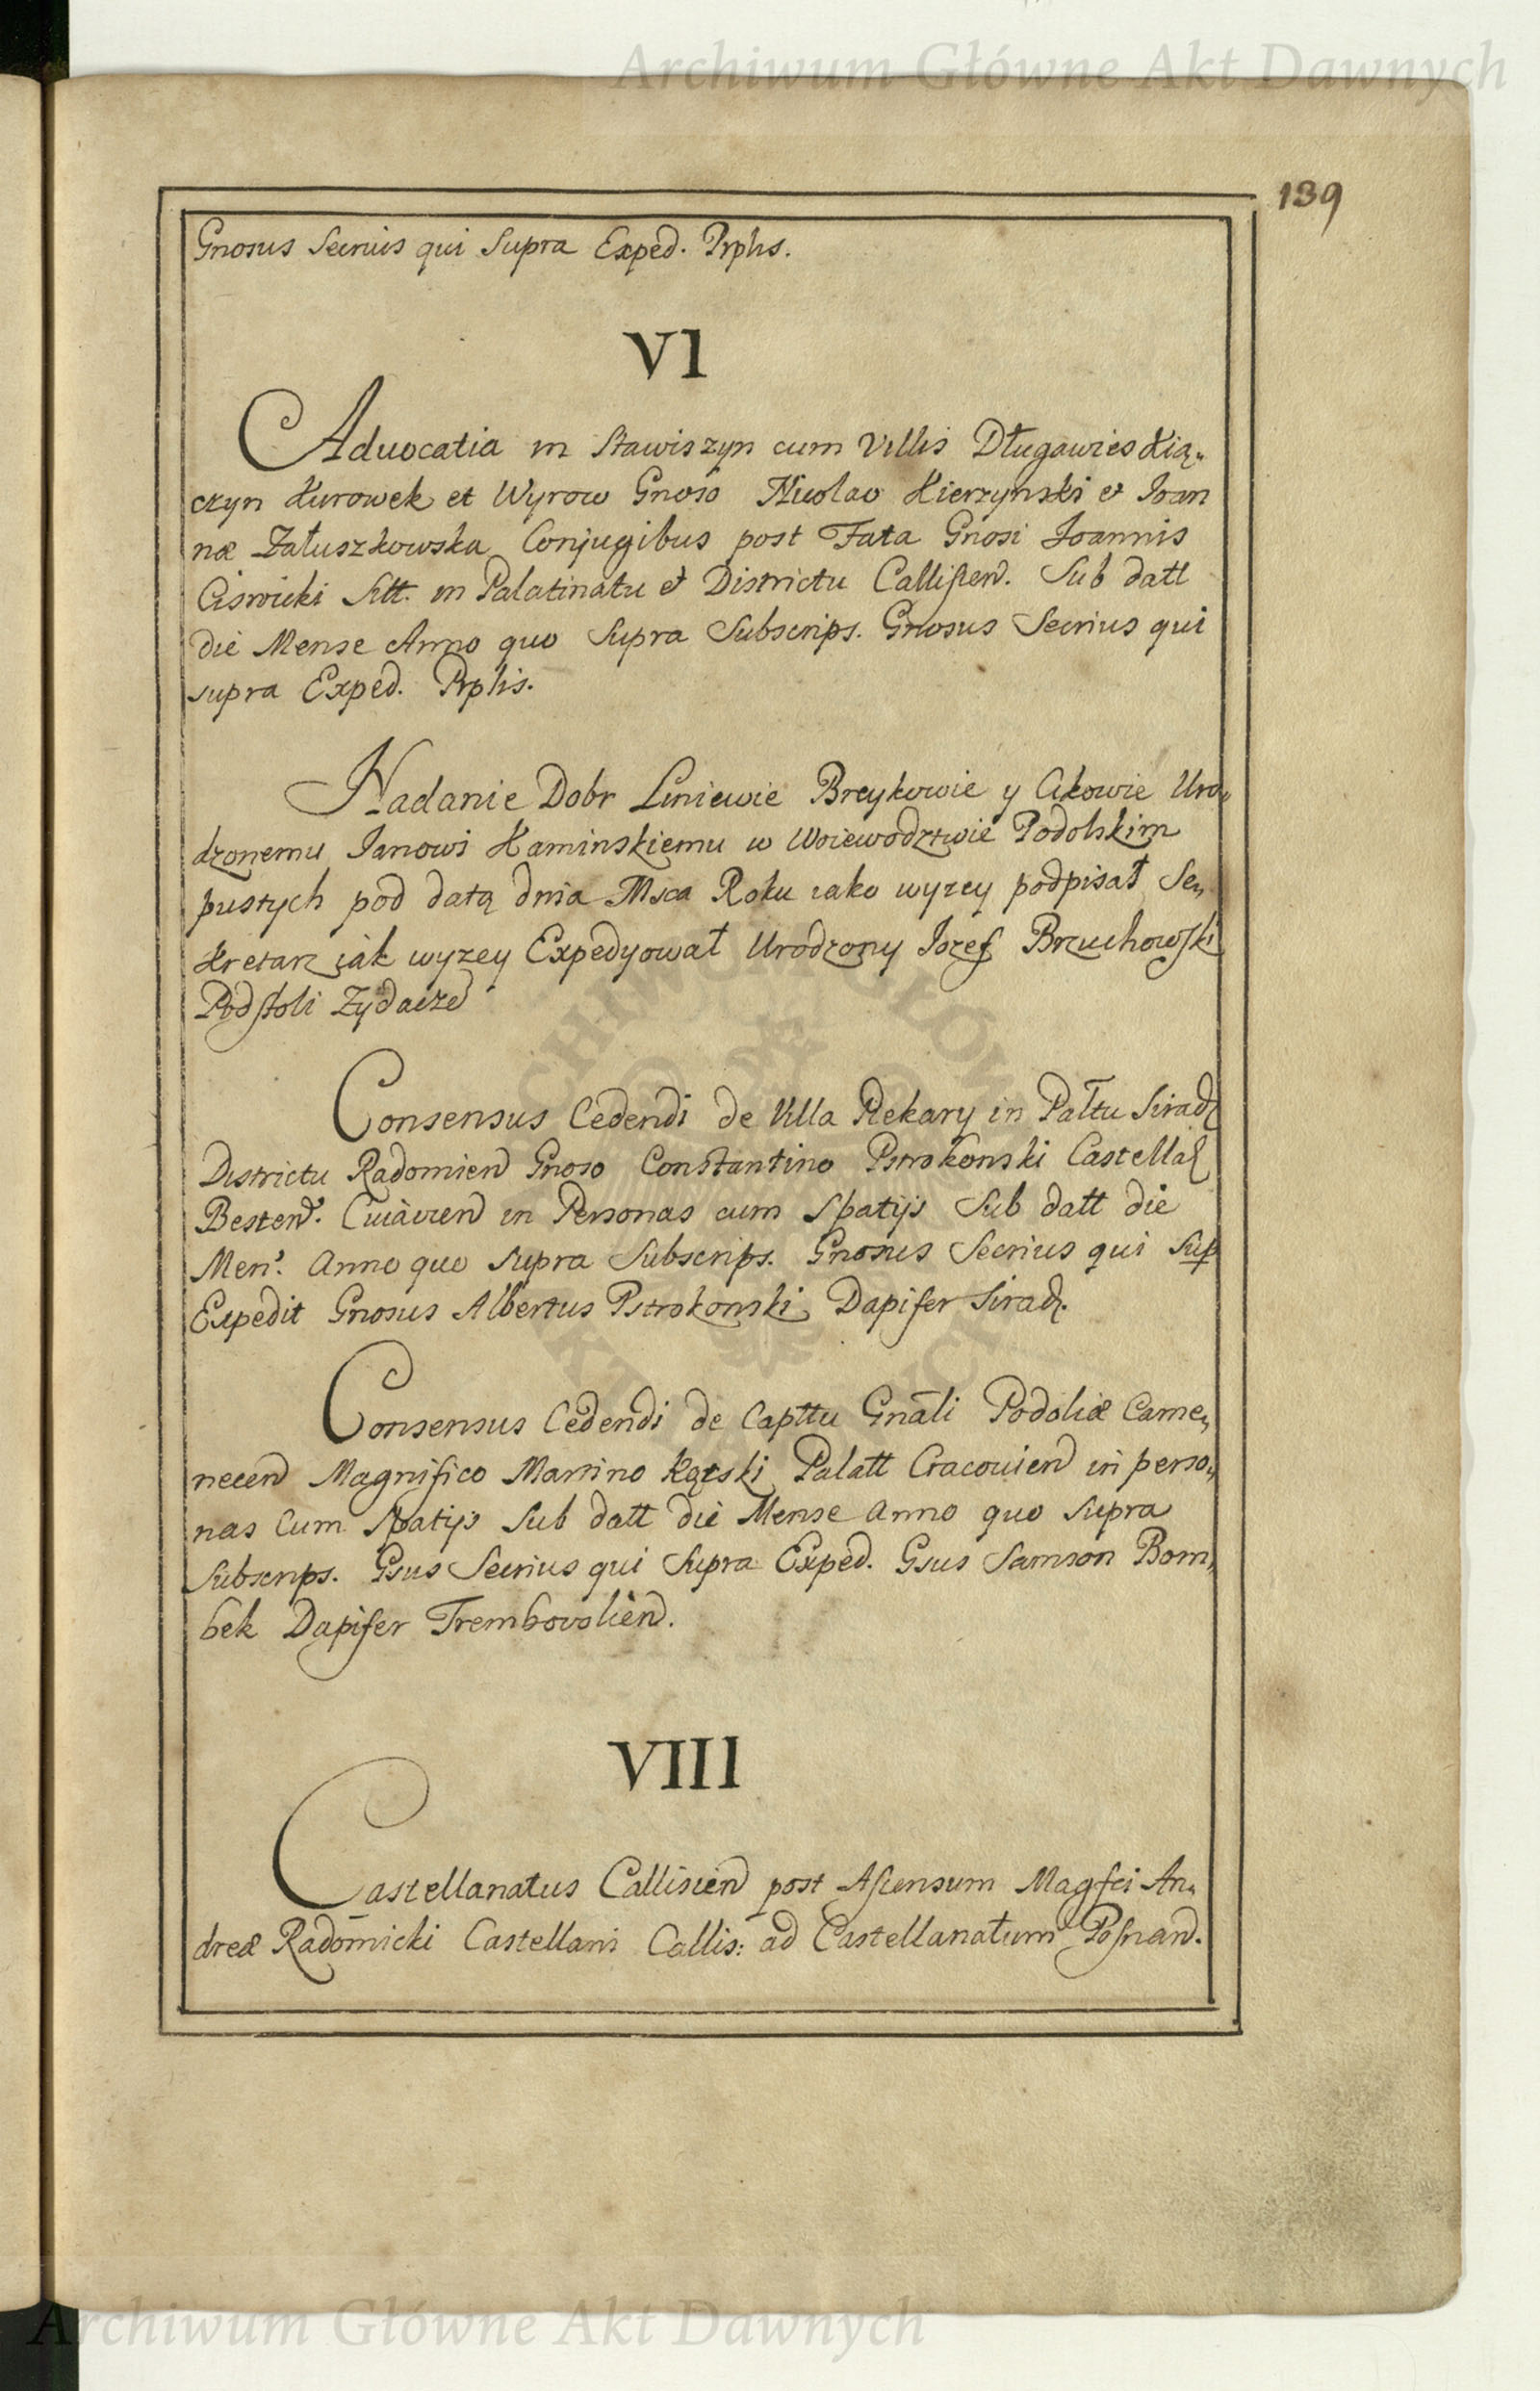 Archiwum Główne Akt Dawnych
139
Gnosus Secrius qui Supra Exped. Prphs.
VI
Aduocatia in Stawiszyn cum Villis Długawies Kią„
czyn Kurowek et Wyrow Gnoso Nicolao Kierzynski et Ioan
næ Załuszkowska Conjugibus post Fata Gnosi Ioannis
Ciswicki Sitt. in Palatinatu et Districtu Callisien. Sub datt
die Mense Anno quo Supra Subscrips. Gnosus Secrius qui
supra Exped. Prphs.
Nadanie Dobr Liniewie Breykowie y Cikowie Uro„
dzonemu Janowi Kaminskiemu w Woiewodztwie Podolskim
pustych pod datą dnia Msca Roku iako wyzey podpisał Se„
kretarz iak wyzey Expedyował Urodzony Iozef Brzuchowski
Podstoli Zydacze
Consensus Cedendi de Villa Piekary in Pałtu Sirad
Districtu Radomien Gnoso Constantino Pstrokonski Castella
Besten. Cuiavien in Personas cum Spatijs Sub datt die
Men. Anno quo Supra Subscrips. Gnosus Secrius qui Sup
Expedit Gnosus Albertus Pstrokonski Dapifer Sirad.
Consensus Cedendi de Capttu Gnāli Podoliæ Came„
necen Magnifico Martino Kątski Palatt Cracouien in perso„
nas Cum Spatijs Sub datt die Mense Anno quo Supra
Subscrips. Gsus Secrius qui Supra Exped. Gsus Samson Bom„
bek Dapifer Trembovolien.
VIII
Castellanatus Callisien post Ascensum Magfci An„
dreæ Radomicki Castellani Callis: ad Castellanatum Posnan.
Archiwum Główne Akt Dawnych